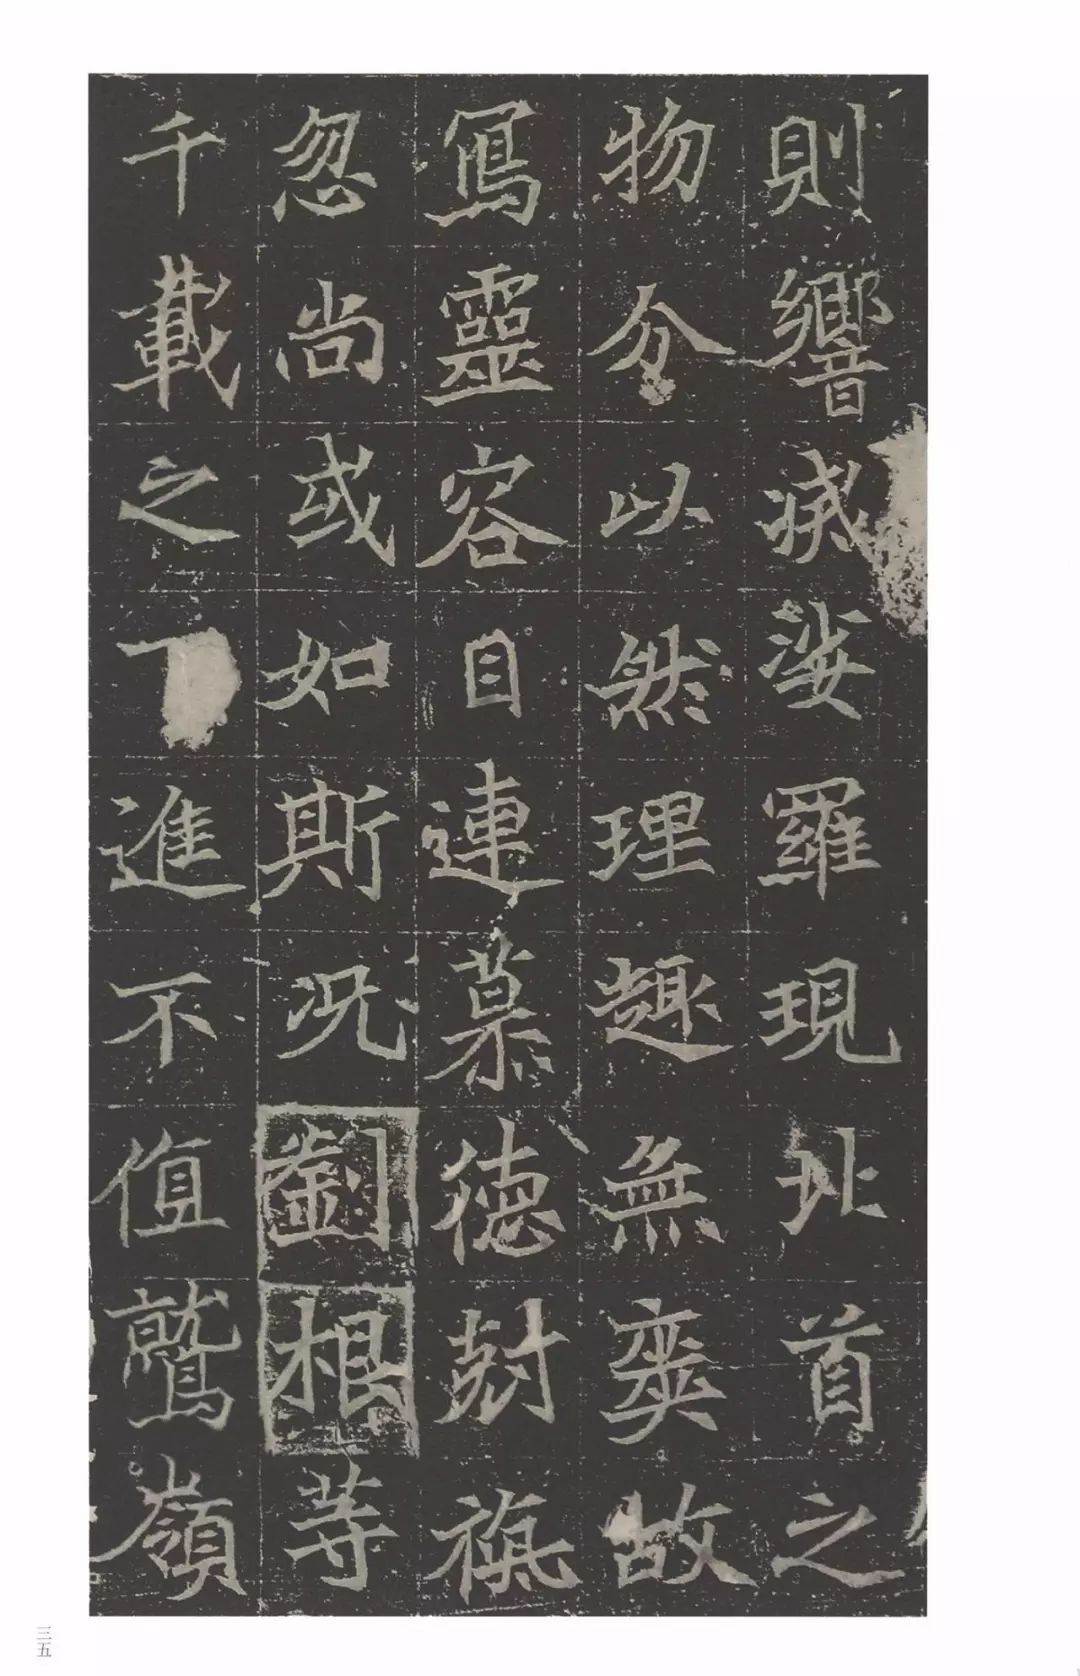 則響滅娑羅現北首之
物分以然理趣無爽故
寫靈容目連慕德尅栴
忽尚或如斯況劉根等
千載之下進不值鷲嶺
三五